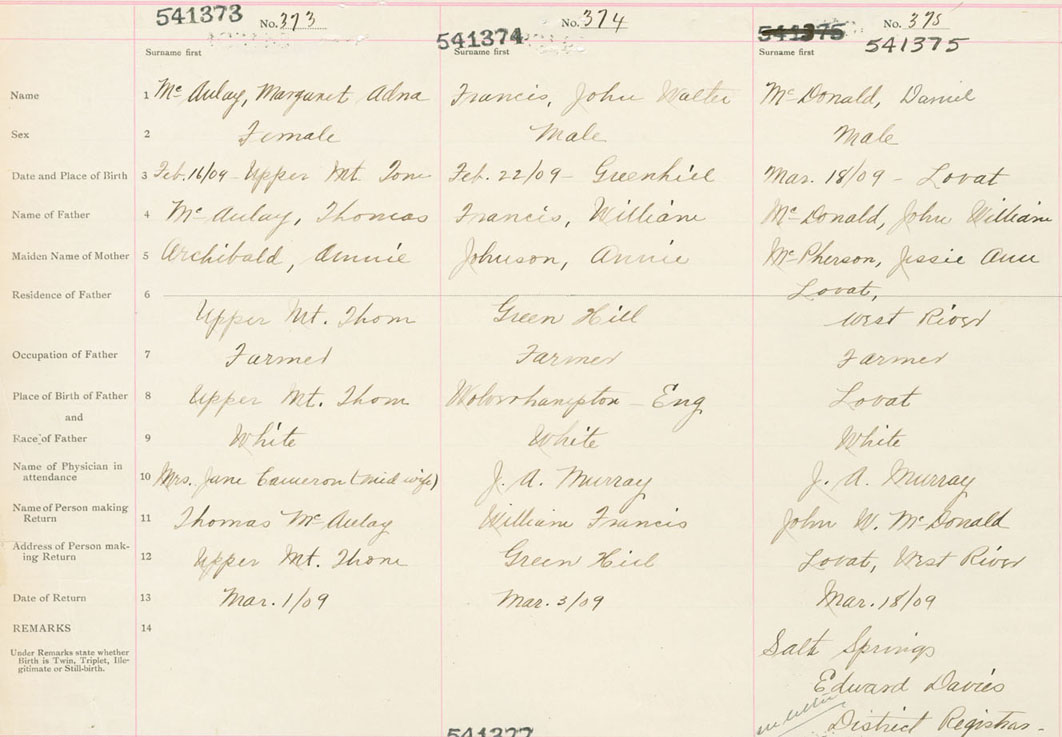 541373 No. 373 541374 No. 374 541375 No. 375
541375
Surname first Surname first Surname first
Name 1 Mc Aulay, Margaret Edna Francis, John Walter McDonald, Daniel
Sex 2 Female Male Male
Date and Place of Birth 3 Feb. 16/09 - Upper Mt. Tom Feb. 22/09 - Greenhill Mar. 18/09 - Lovat
Name of Father 4 Mc Aulay, Thomas Francis, William McDonald, John William
Maiden Name of Mother 5 Archibald, Annie Johnson, Annie McPherson, Jessie Ann
Residence of Father 6 Lovat,
Upper Mt. Thom Green Hill West River
Occupation of Father 7 Farmer Farmer Farmer
Place of Birth of Father 8 Upper Mt. Thom Wolverhampton - Eng Lovat
and
Race of Father 9 White White White
Name of Physician in
attendance 10 Mrs. Jane Cameron (mid wife) J. A. Murray J. A. Murray
Name of Person making
Return 11 Thomas McAulay William Francis John W. McDonald
Address of Person mak-
ing Return 12 Upper Mt. Thom Green Hill Lovat, West River
Date of Return 13 Mar. 1/09 Mar. 3/09 Mar. 18/09
REMARKS 14
Under Remarks state whether
Birth is Twin, Triplet, Ille-
gitimate or Still-birth.
Salt Springs
Edward Davies
District Registrar -
541377